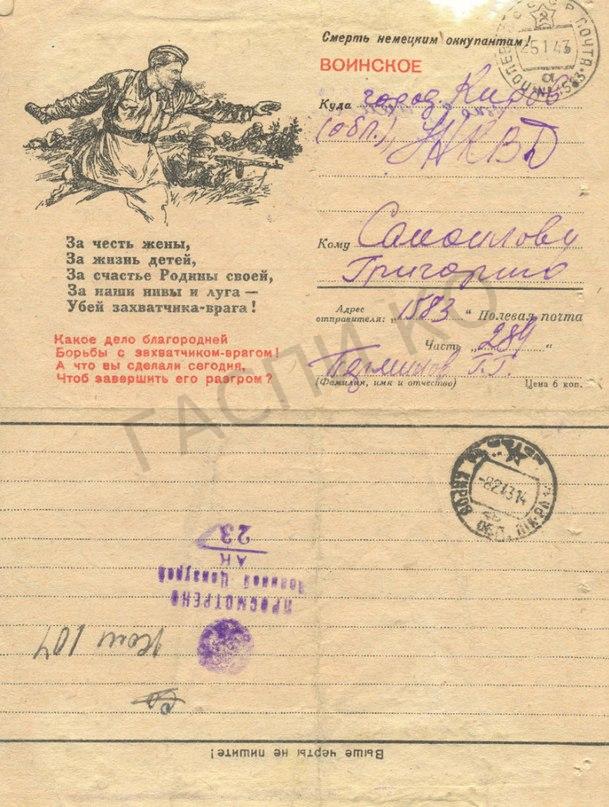 Смерть немецким оккупантам!
ВОИНСКОЕ
25 1 43
Куда город Киров
(обл.) НКВД
Кому Самоилову
Григорию
Адрес отправителя: „1583“ Полевая почта
Часть „289“
Г. Г.
(Фамилия, имя и отчество) Цена 6 коп.
За честь жены,
За жизнь детей,
За счастье Родины своей,
За наши нивы и луга —
Убей захватчика-врага!
Какое дело благородней
Борьбы с захватчиком-врагом!
А что вы сделали сегодня,
Чтоб завершить его разгром?
ГАСПИ КО
-8 2 43 14
КИРОВ
ПРОСМОТРЕНО
Военной Цензурой
АК
23
104
Выше черты не пишите!